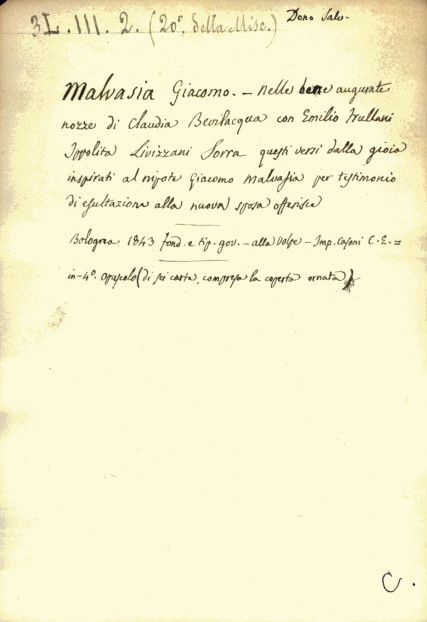 3L. III. 2. (20°. della Misc.) Dono Salv.
Malvasia Giacomo. – Nelle bene augurate
nozze di Claudia Bevilacqua con Emilio Trullani
Ippolita Livizzani Sorra questi versi dalla gioia
inspirati al nipote Giacomo Malvasia per testimonio
di esultazione alla nuova sposa offerisce
Bologna 1843 fond. e tip. gov. – alla Volpe – Imp. Casoni C. E. =
in-4°. Opuscolo (di sei carte, compresa la coperta ornata)
C.